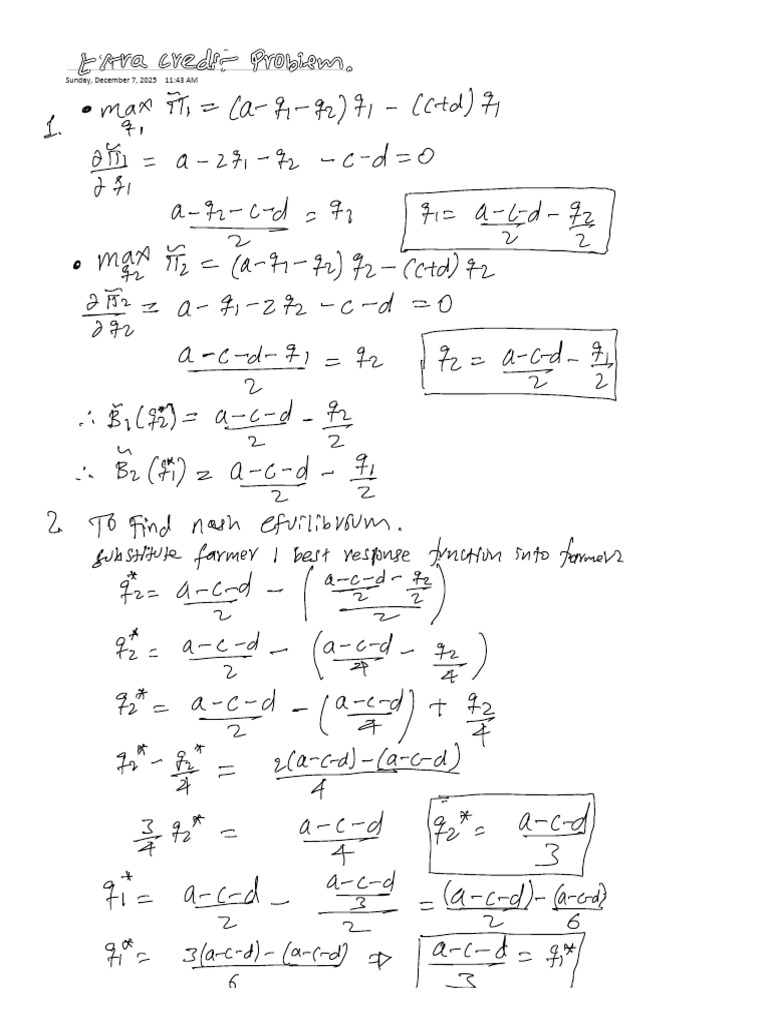 Extra credit Problem.
Sunday, December 7, 2025 11:43 AM
1. • max_{q1} π̃1 = (a-q1-q2)q1 - (c+d)q1
∂π̃1/∂q1 = a-2q1-q2-c-d=0
(a-q2-c-d)/2 = q1 q1 = (a-c-d)/2 - q2/2
• max_{q2} π̃2 = (a-q1-q2)q2-(c+d)q2
∂π̃2/∂q2 = a-q1-2q2-c-d=0
(a-c-d-q1)/2 = q2 q2 = (a-c-d)/2 - q1/2
∴ B̃1(q2*) = (a-c-d)/2 - q2/2
∴ B̃2(q1*) = (a-c-d)/2 - q1/2
2. To find nash equilibrium.
substitute farmer 1 best response function into farmer 2
q2* = (a-c-d)/2 - (((a-c-d)/2 - q2/2)/2)
q2* = (a-c-d)/2 - ((a-c-d)/4 - q2/4)
q2* = (a-c-d)/2 - ((a-c-d)/4) + q2/4
q2* - q2*/4 = (2(a-c-d)-(a-c-d))/4
3/4 q2* = (a-c-d)/4 q2* = (a-c-d)/3
q1* = (a-c-d)/2 - ((a-c-d)/3)/2 = (a-c-d)/2 - (a-c-d)/6
q1* = (3(a-c-d)-(a-c-d))/6 ⇒ (a-c-d)/3 = q1*